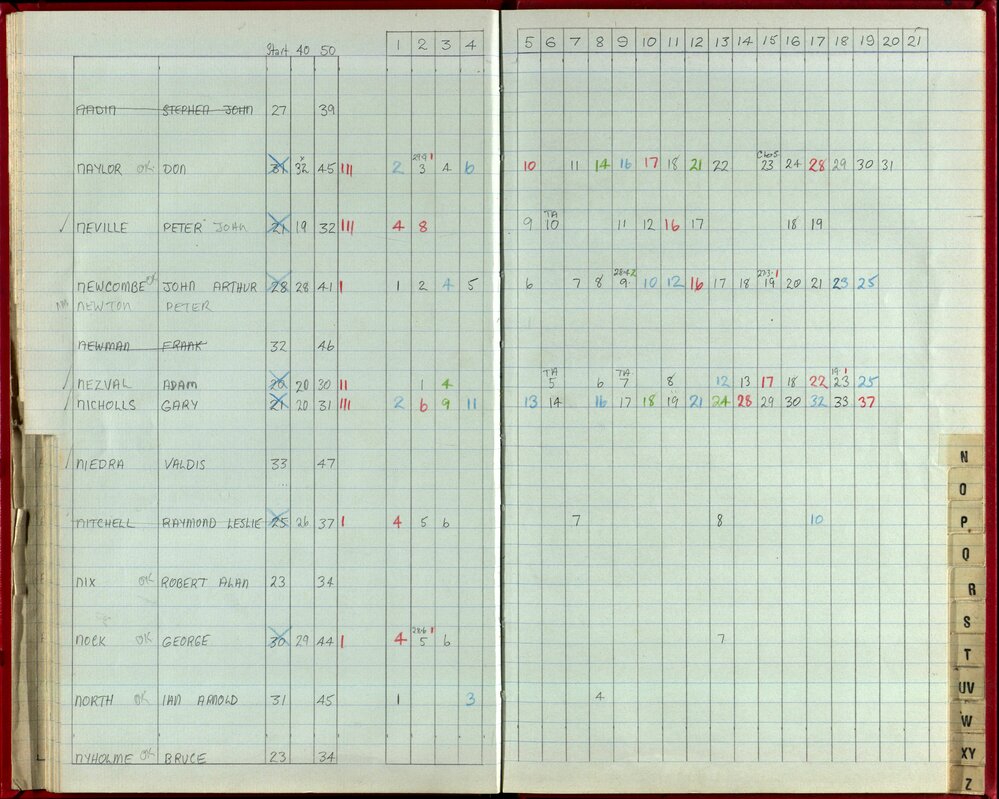 Start 40 50 1 2 3 4 5 6 7 8 9 10 11 12 13 14 15 16 17 18 19 20 21
STEPHEN JOHN 27 39
29·9 1 Clos
NAYLOR OK DON 31 32 45 III 2 3 4 6 10 11 14 16 17 18 21 22 23 24 28 29 30 31
TA
NEVILLE PETER JOHN 21 19 32 III 4 8 9 10 11 12 16 17 18 19
28·4·2 27·3·1
NEWCOMBE OK JOHN ARTHUR 28 28 41 I 1 2 4 5 6 7 8 9 10 12 16 17 18 19 20 21 23 25
NEWTON PETER
NEWMAN FRANK 32 46
TA TA 19 1
NEZVAL ADAM 20 20 30 II 1 4 5 6 7 8 12 13 17 18 22 23 25
NICHOLLS GARY 21 20 31 III 2 6 9 11 13 14 16 17 18 19 21 24 28 29 30 32 33 37
NIEDRA VALDIS 33 47
NITCHELL RAYMOND LESLIE 25 26 37 I 4 5 6 7 8 10
NIX OK ROBERT ALAN 23 34
28·6 1
NOCK OK GEORGE 30 29 44 I 4 5 6 7
NORTH OK IAN ARNOLD 31 45 1 3 4
NYHOLME OK BRUCE 23 34
N
O
P
Q
R
S
T
UV
W
XY
Z